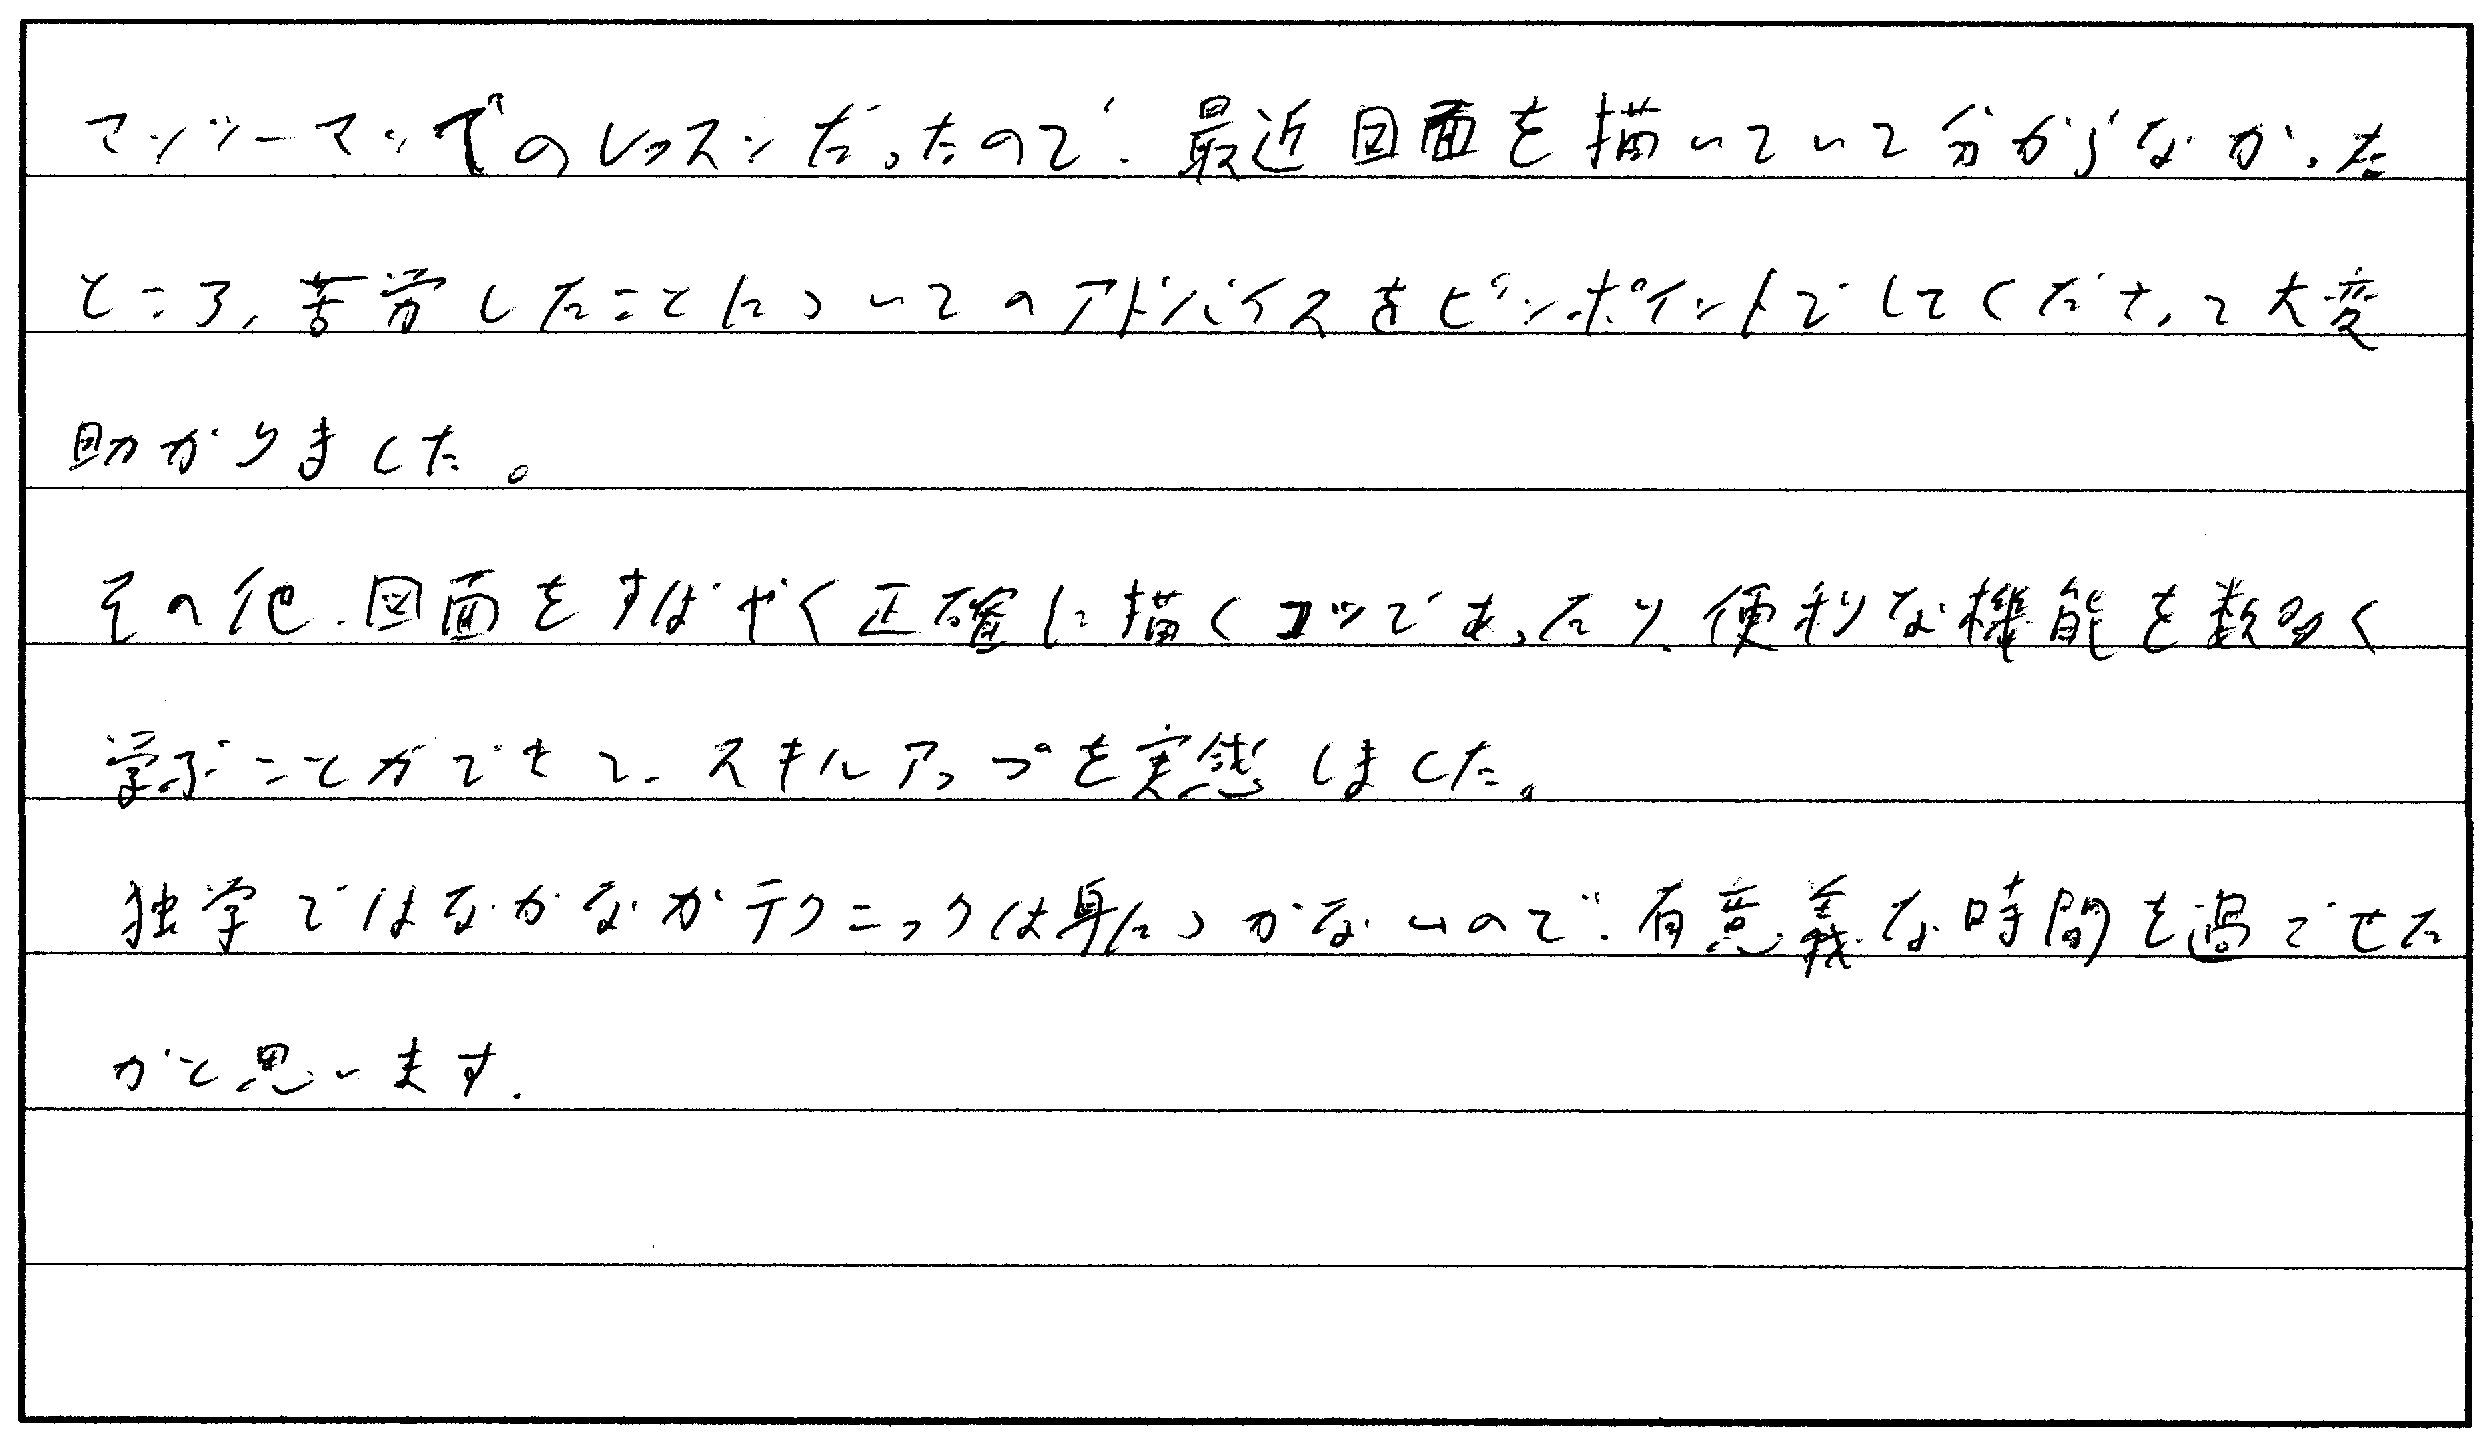 マンツーマンでのレッスンだったので、最近図面を描いていて分からなかった
ところ、苦労したことについてのアドバイスをピンポイントでしてくださって大変
助かりました。
その他、図面をすばやく正確に描くコツであったり、便利な機能を数多く
学ぶことができて、スキルアップを実感しました。
独学ではなかなかテクニックは身につかないので、有意義な時間を過ごせた
かと思います。